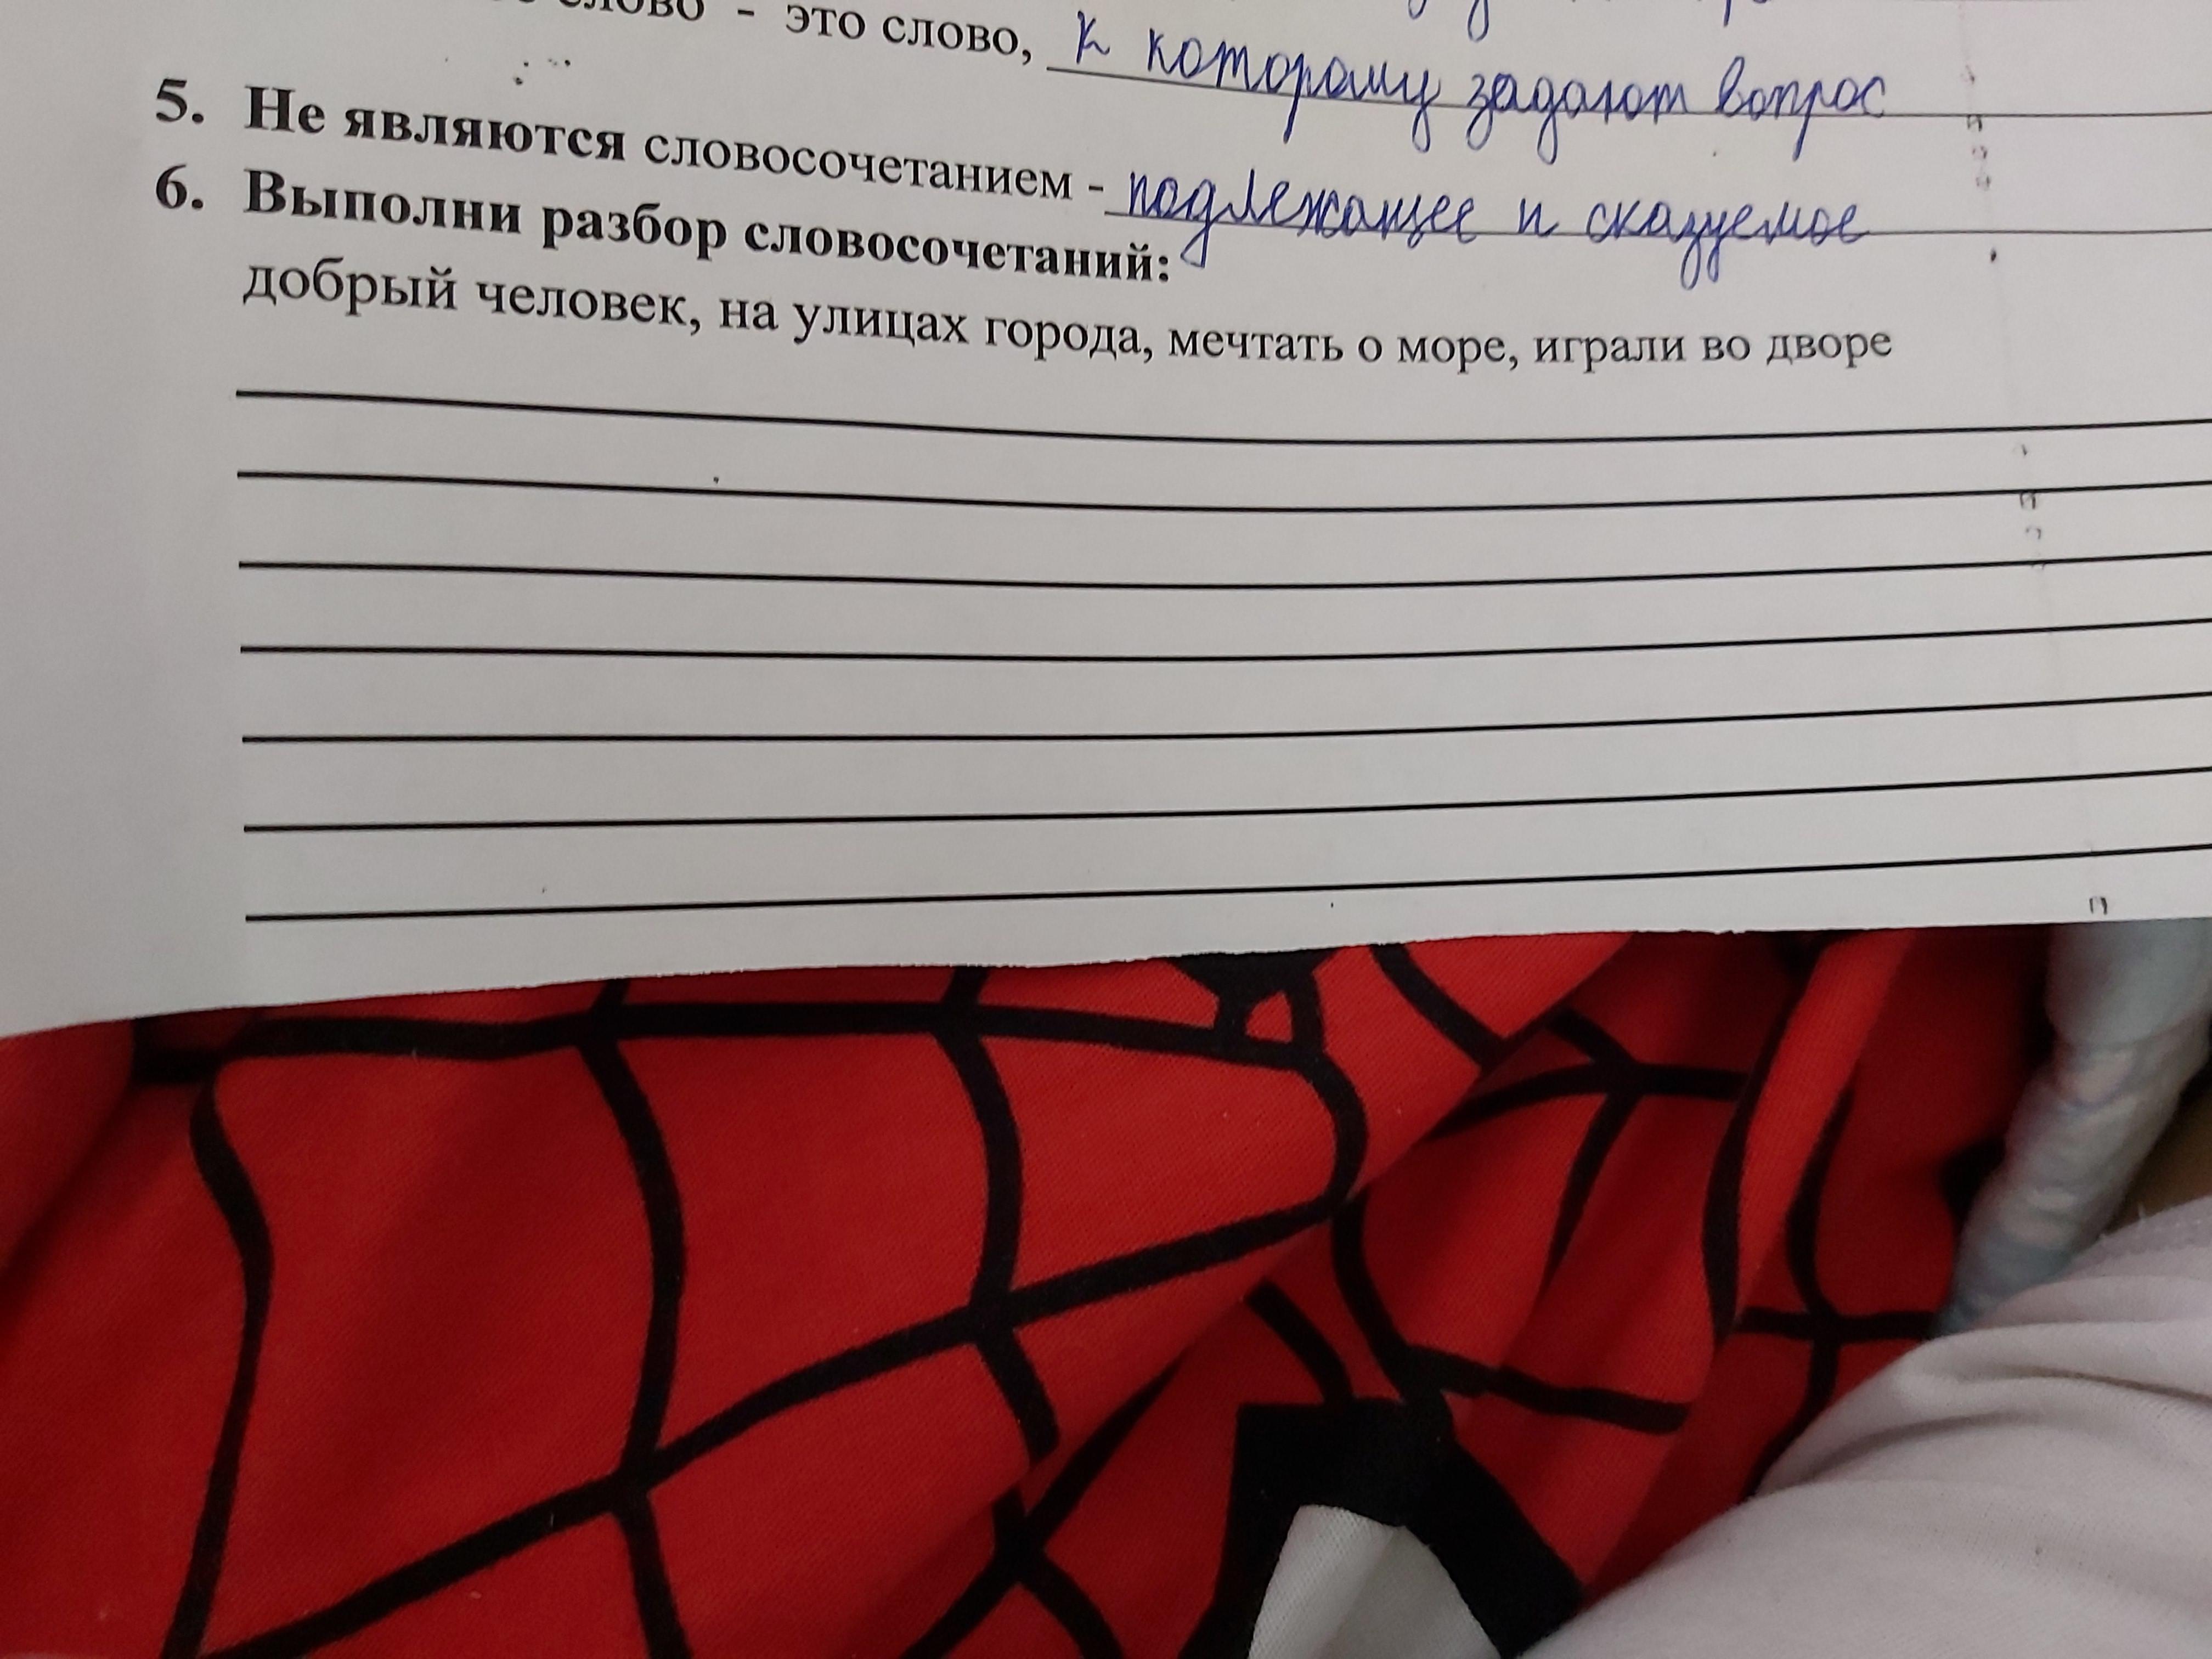 слово - это слово, к которому задают вопрос
5. Не являются словосочетанием - подлежащее и сказуемое
6. Выполни разбор словосочетаний:
добрый человек, на улицах города, мечтать о море, играли во дворе